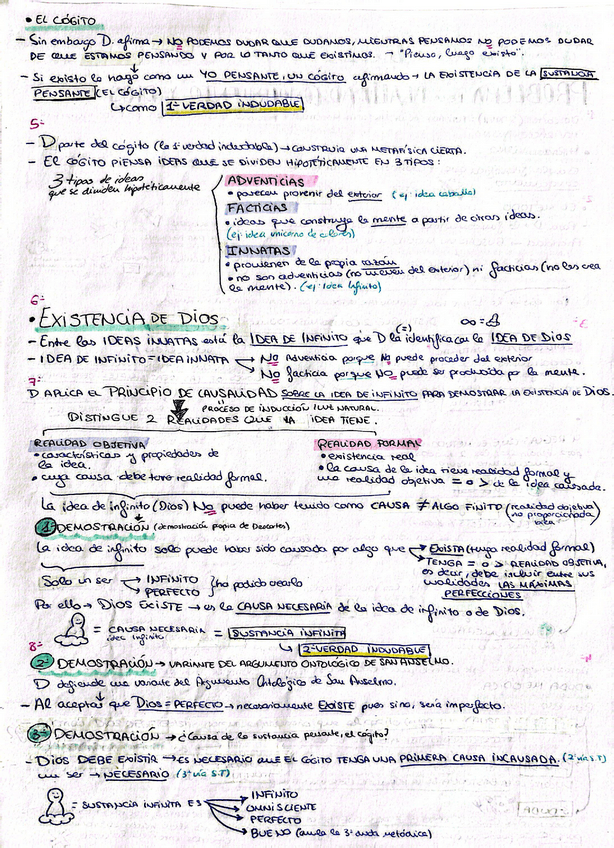 • EL CÓGITO
- Sin embargo D. afirma → NO PODEMOS DUDAR QUE DUDAMOS, MIENTRAS PENSAMOS NO PODEMOS DUDAR
DE QUE ESTAMOS PENSANDO Y POR LO TANTO QUE EXISTIMOS. → "Pienso, luego existo".
- Si existo lo hago como un YO PENSANTE, UN CÓGITO afirmando → LA EXISTENCIA DE LA SUSTANCIA
PENSANTE (EL CÓGITO)
↳ como 1ª VERDAD INDUDABLE
5-
- D parte del cógito (la 1ª verdad indudable) → CONSTRUIR UNA METAFÍSICA CIERTA.
- EL CÓGITO PIENSA IDEAS QUE SE DIVIDEN HIPOTÉTICAMENTE EN 3 TIPOS:
3 tipos de ideas
que se dividen hipotéticamente
ADVENTICIAS
• parecen provenir del exterior (ej: idea caballo)
FACTICIAS
• ideas que construye la mente a partir de otras ideas.
(ej: idea unicornio de colores)
INNATAS
• provienen de la propia razón
• no son adventicias (no vienen del exterior) ni facticias (no las crea
la mente). (ej: idea infinito)
6-
• EXISTENCIA DE DIOS ∞=
- Entre las IDEAS INNATAS está la IDEA DE INFINITO que D la identifica (=) con la IDEA DE DIOS
- IDEA DE INFINITO = IDEA INNATA → No Adventicia porque No puede proceder del exterior
→ No facticia porque NO puede ser producida por la mente.
7-
D APLICA EL PRINCIPIO DE CAUSALIDAD SOBRE LA IDEA DE INFINITO PARA DEMOSTRAR LA EXISTENCIA DE DIOS.
PROCESO DE INDUCCIÓN / LUZ NATURAL.
DISTINGUE 2 REALIDADES QUE LA IDEA TIENE.
REALIDAD OBJETIVA
• características y propiedades de
la idea.
• cuya causa debe tener realidad formal.
REALIDAD FORMAL
• existencia real
• la causa de la idea tiene realidad formal y
una realidad objetiva = o > de la idea causada.
La idea de infinito (Dios) No puede haber tenido como CAUSA ≠ ALGO FINITO (realidad objetiva
no proporcionada
1ª DEMOSTRACIÓN (demostración propia de Descartes)
La idea de infinito solo puede haber sido causada por algo que → EXISTA (tenga realidad formal)
→ TENGA = o > REALIDAD OBJETIVA,
es decir, debe incluir entre sus
cualidades LAS MÁXIMAS
PERFECCIONES
Solo un ser → INFINITO
→ PERFECTO } ha podido crearla
Por ello → DIOS EXISTE → es la CAUSA NECESARIA de la idea de infinito o de Dios.
= CAUSA NECESARIA = SUSTANCIA INFINITA
idea infinito
↳ 2ª VERDAD INDUDABLE
8-
2ª DEMOSTRACIÓN → VARIANTE DEL ARGUMENTO ONTOLÓGICO DE SAN ANSELMO.
D defiende una variante del Argumento Ontológico de San Anselmo.
- Al aceptar que Dios = PERFECTO → necesariamente EXISTE pues sino, sería imperfecto.
3ª DEMOSTRACIÓN → ¿Causa de la sustancia pensante, el cógito?
- DIOS DEBE EXISTIR → ES NECESARIO QUE EL CÓGITO TENGA UNA PRIMERA CAUSA INCAUSADA. (2ª vía S.T)
un ser → NECESARIO (3ª vía S.T)
= SUSTANCIA INFINITA ES → INFINITO
→ OMNISCIENTE
→ PERFECTO
→ BUENO (anula la 3ª duda metódica)